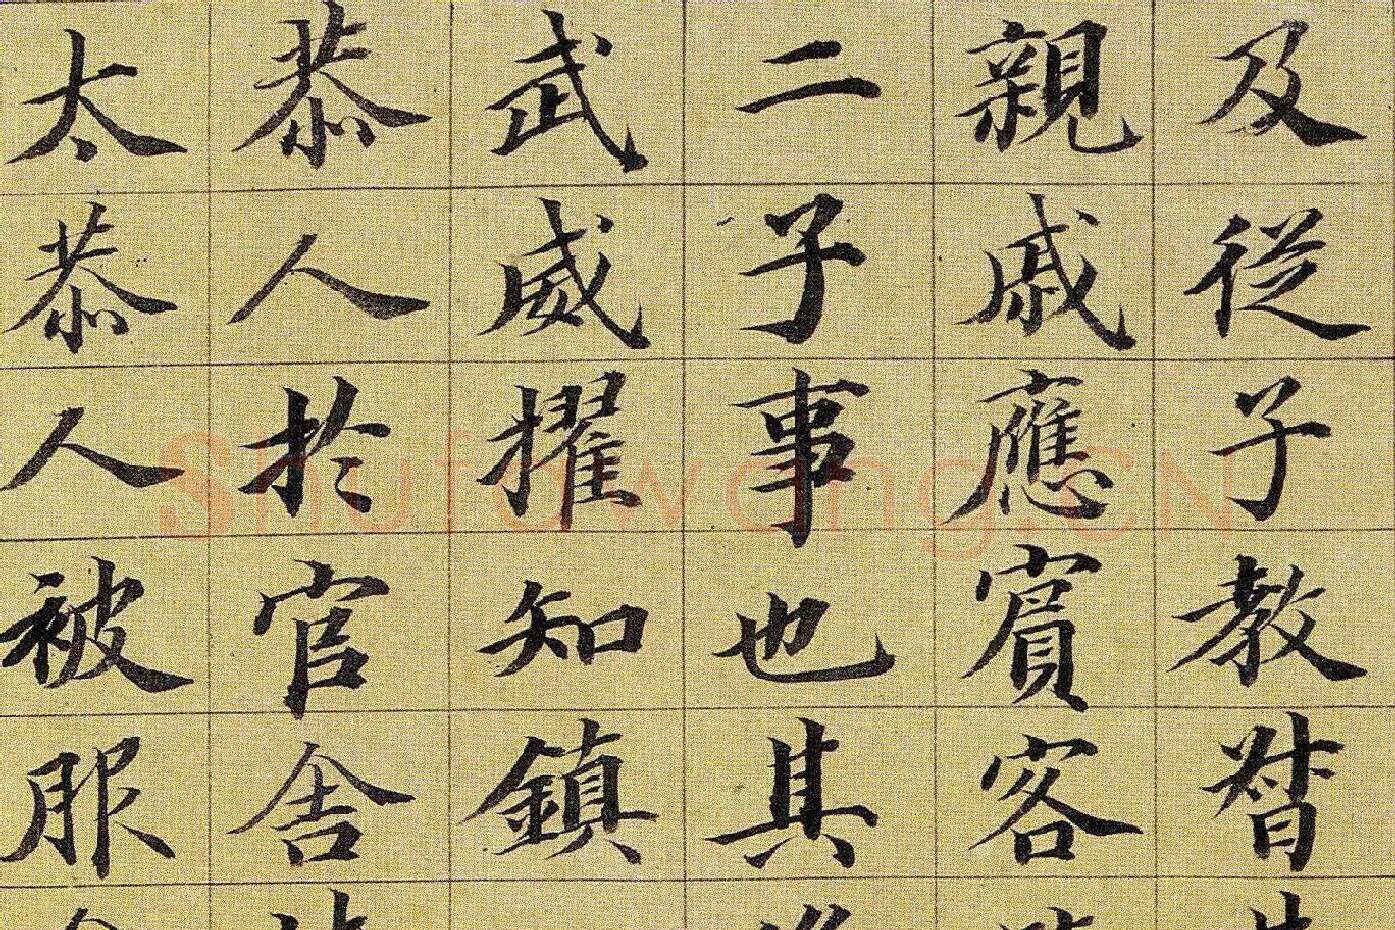 及從子教督
親戚應賓客
二子事也其
武威擢知鎮
恭人於官舍
太恭人被服
Shufawang.CN